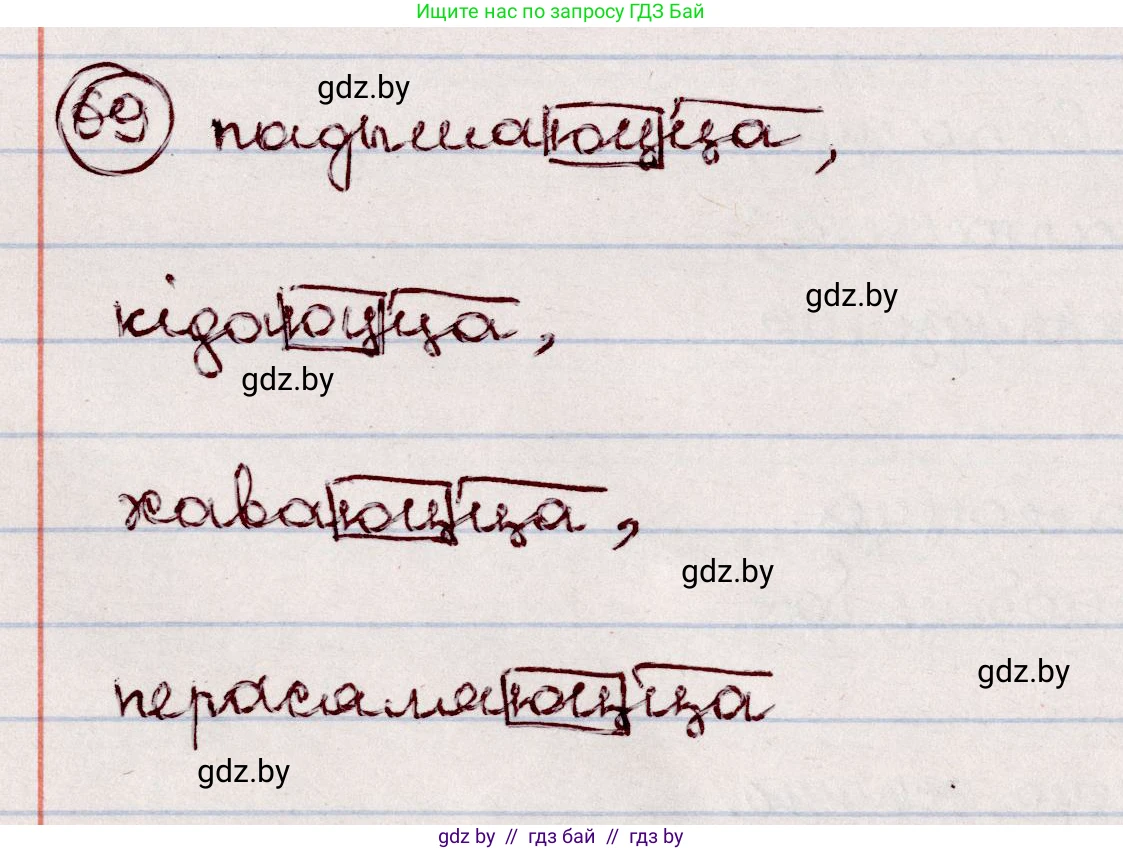 Ищите нас по запросу ГДЗ Бай
gdz.by
69 падымаюцца,
gdz.by
кідаюцца,
gdz.by
хаваюцца,
gdz.by
gdz.by
перасаляюцца
gdz.by
gdz by // гдз бай // гдз by